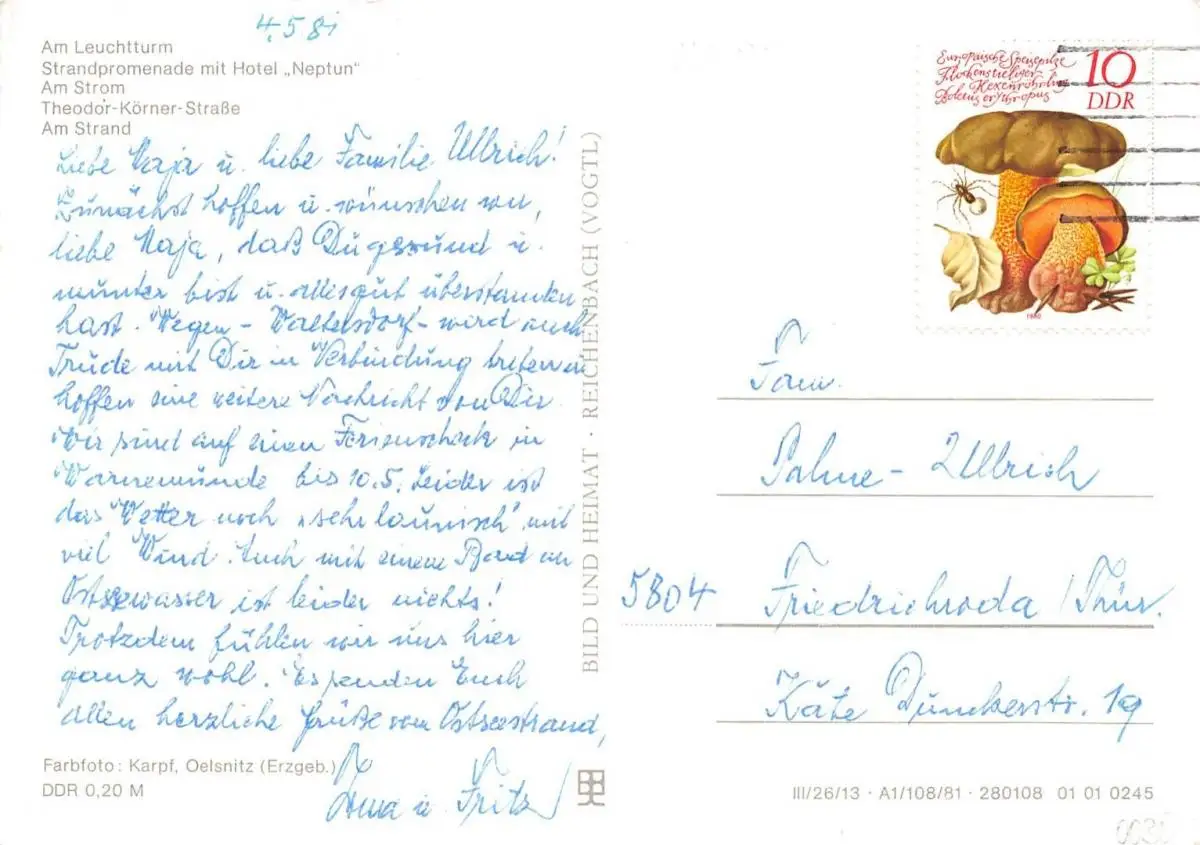 4.5.81
Am Leuchtturm
Strandpromenade mit Hotel „Neptun“
Am Strom
Theodor-Körner-Straße
Am Strand
Liebe Marja u. liebe Familie Ullrich!
Zunächst hoffen u. wünschen wir,
liebe Marja, daß Du gesund u.
munter bist u. alles gut überstanden
hast. Wegen - Waltersdorf - wird auch
Trude mit Dir in Verbindung treten u.
hoffen eine weitere Nachricht von Dir.
Wir sind auf einen Ferienscheck in
Warnemünde bis 10.5. Leider ist
das Wetter noch „sehr launisch“ mit
viel Wind. Auch mit einem Bad im
Ostseewasser ist leider nichts!
Trotzdem fühlen wir uns hier
ganz wohl. Es senden Euch
allen herzliche Grüße vom Ostseestrand,
u. Fritz
Farbfoto: Karpf, Oelsnitz (Erzgeb.)
DDR 0,20 M
BILD UND HEIMAT · REICHENBACH (VOGTL)
Europäische Speisepilze
Flockenstieliger
Hexenröhrling
Boletus erythropus
10
DDR
1980
Fam.
Palme - Ullrich
5804 Friedrichroda / Thür.
Käte Dunckerstr. 19
III/26/13 · A1/108/81 · 280108 01 01 0245